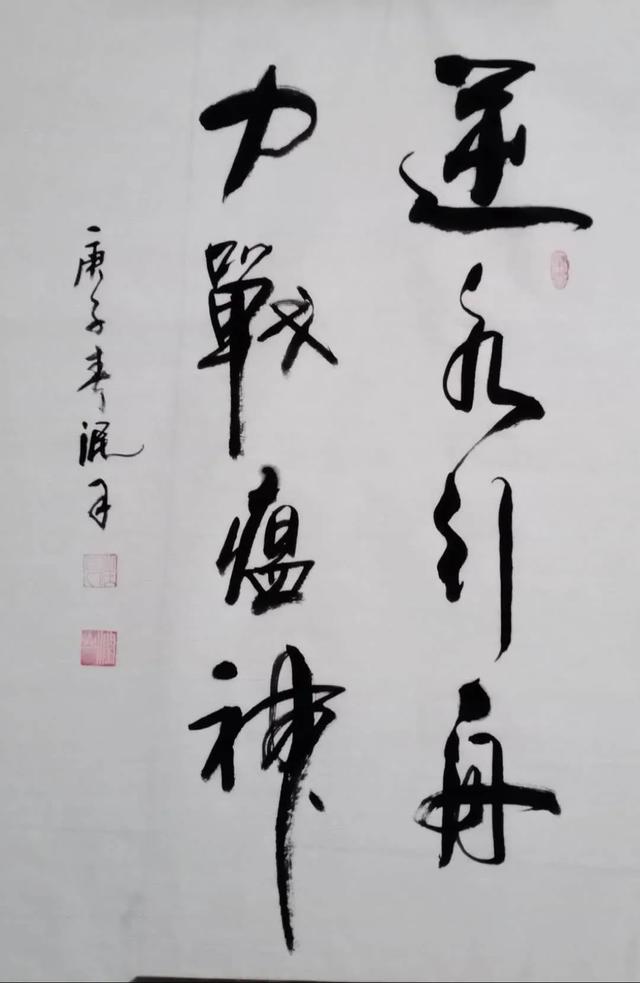 逆水引舟
力戰瘟神
庚子春